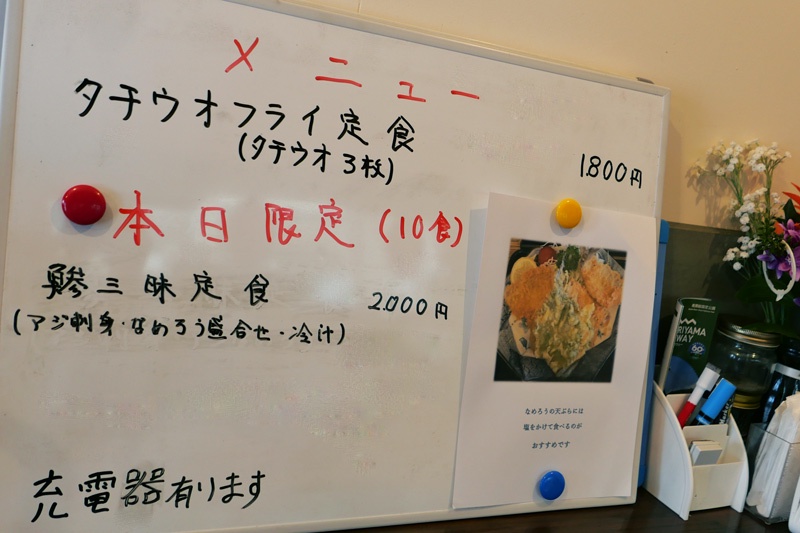 メニュー
タチウオフライ定食
(タチウオ3枚)
1.800円
本日限定(10食)
鯵三昧定食
2.000円
(アジ刺身・なめろう盛合せ・冷汁)
なめろうの天ぷらには
塩をかけて食べるのが
おすすめです
充電器有ります
RIYAMA
WAY